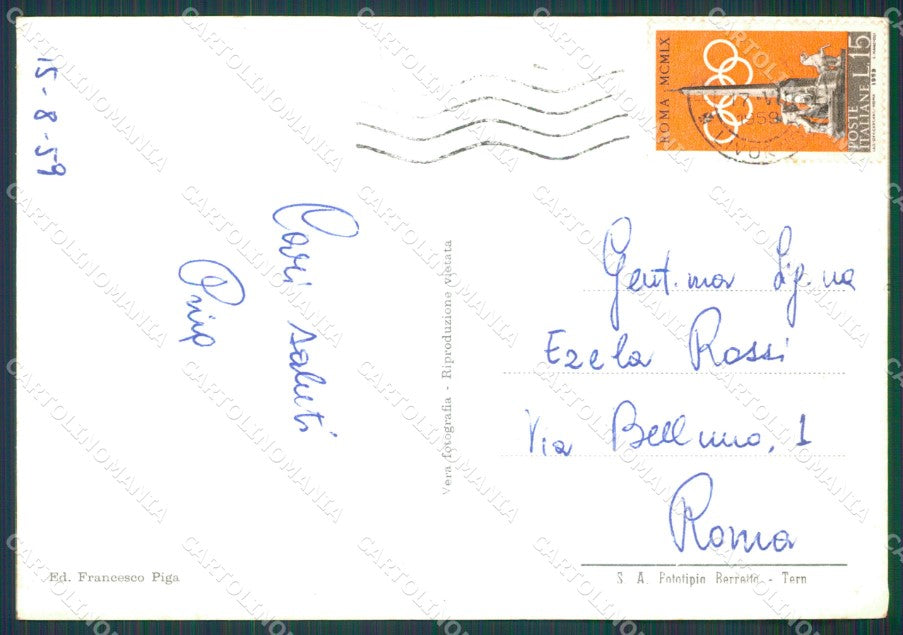 15-8-59
Cari saluti
ROMA MCMLX
POSTE ITALIANE L.15
1959
Vera fotografia - Riproduzione vietata
Gent.ma Sig.na
Ezela Rossi
Via Belluno, 1
Roma
Ed. Francesco Piga
S. A. Fototipia Berretta - Terni
CARTOLINOMANIA